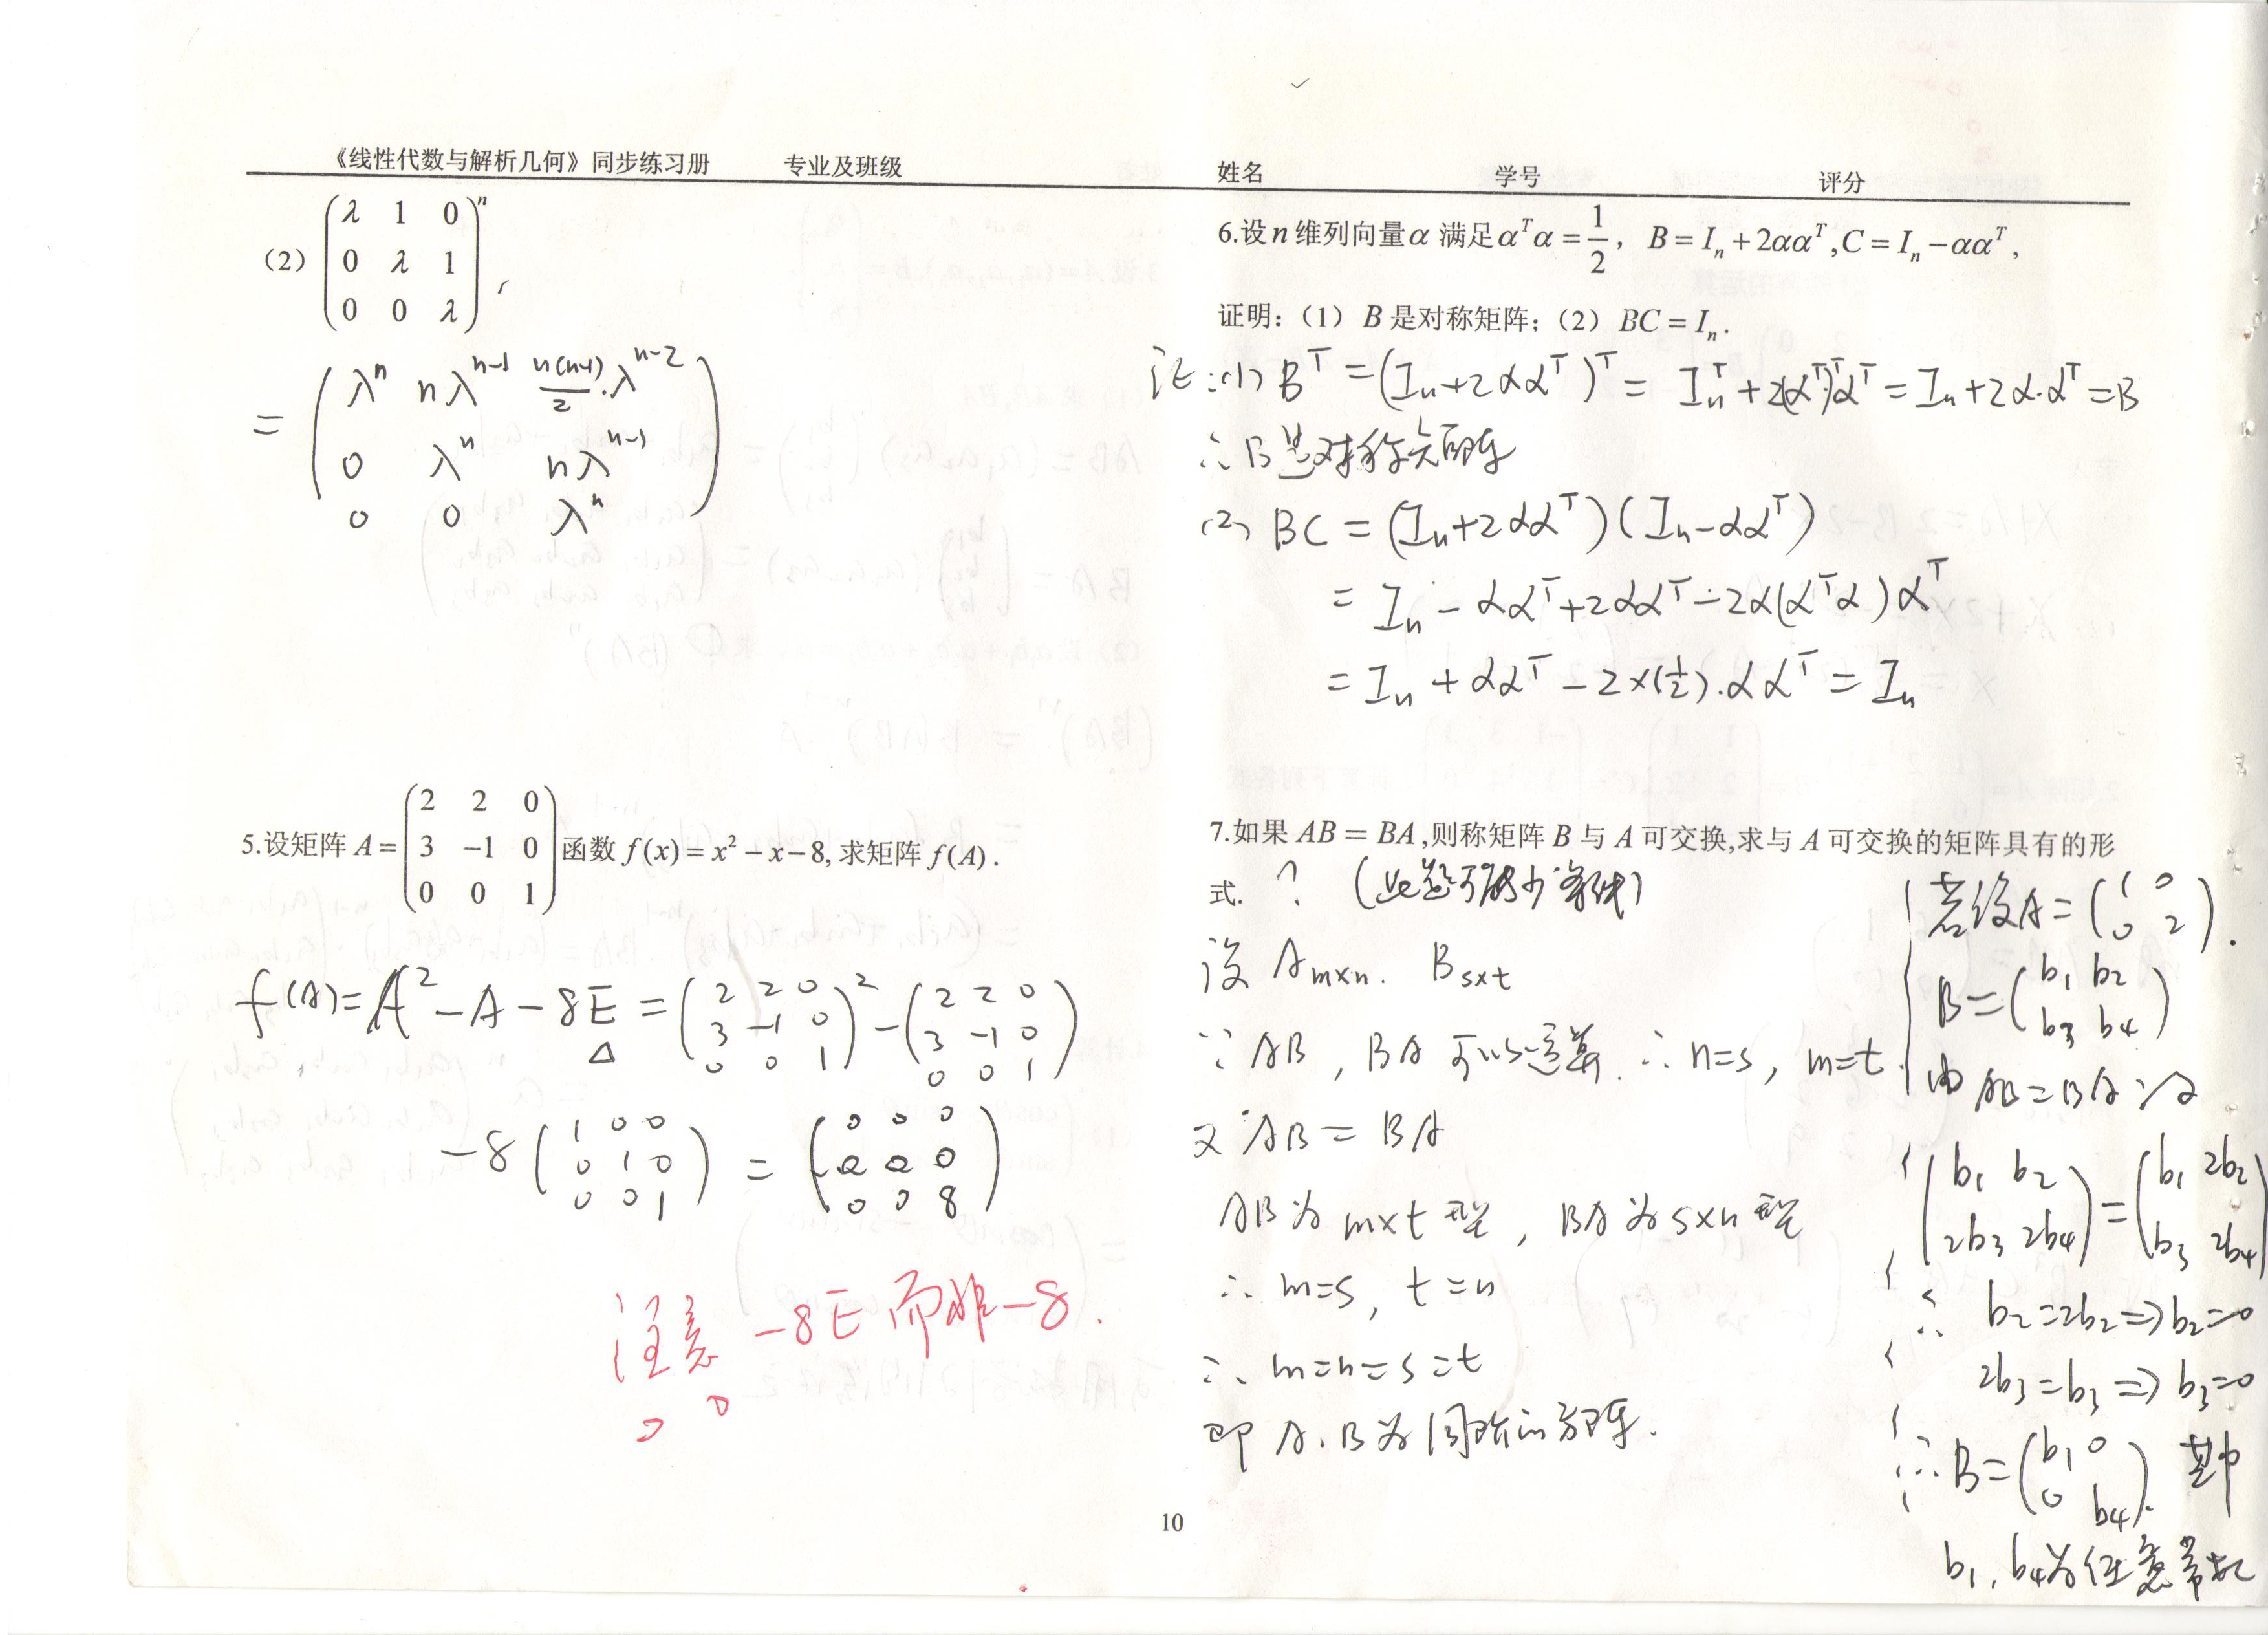 《线性代数与解析几何》同步练习册 专业及班级 姓名 学号 评分
(2) \begin{pmatrix} λ & 1 & 0 \\ 0 & λ & 1 \\ 0 & 0 & λ \end{pmatrix}^n,
= \begin{pmatrix} λ^n & nλ^{n-1} & \frac{n(n-1)}{2}·λ^{n-2} \\ 0 & λ^n & nλ^{n-1} \\ 0 & 0 & λ^n \end{pmatrix}
5.设矩阵 A = \begin{pmatrix} 2 & 2 & 0 \\ 3 & -1 & 0 \\ 0 & 0 & 1 \end{pmatrix} 函数 f(x) = x² − x − 8, 求矩阵 f(A).
f(A) = A² − A − 8E = \begin{pmatrix} 2 & 2 & 0 \\ 3 & -1 & 0 \\ 0 & 0 & 1 \end{pmatrix}² − \begin{pmatrix} 2 & 2 & 0 \\ 3 & -1 & 0 \\ 0 & 0 & 1 \end{pmatrix}
−8 \begin{pmatrix} 1 & 0 & 0 \\ 0 & 1 & 0 \\ 0 & 0 & 1 \end{pmatrix} = \begin{pmatrix} 0 & 0 & 0 \\ 0 & 0 & 0 \\ 0 & 0 & 8 \end{pmatrix}
注意 −8E 而非 −8.
6.设 n 维列向量 α 满足 α^Tα = \frac{1}{2}, B = I_n + 2αα^T, C = I_n − αα^T,
证明:(1) B 是对称矩阵;(2) BC = I_n.
证:(1) B^T = (I_n + 2αα^T)^T = I_n^T + 2(α^T)^Tα^T = I_n + 2α·α^T = B
∴ B是对称矩阵
(2) BC = (I_n + 2αα^T)(I_n − αα^T)
= I_n − αα^T + 2αα^T − 2α(α^Tα)α^T
= I_n + αα^T − 2×(\frac{1}{2})·αα^T = I_n
7.如果 AB = BA, 则称矩阵 B 与 A 可交换, 求与 A 可交换的矩阵具有的形
式. ? (此题可能少条件)
设 A_{m×n}. B_{s×t}
∵ AB, BA 可以运算. ∴ n=s, m=t.
又∵ AB = BA
AB为 m×t 型, BA为 s×n 型
∴ m=s, t=n
∴ m=n=s=t
即 A、B为同阶的方阵.
若设A = \begin{pmatrix} 1 & 0 \\ 0 & 2 \end{pmatrix}.
B = \begin{pmatrix} b_1 & b_2 \\ b_3 & b_4 \end{pmatrix}
由 AB = BA
\begin{pmatrix} b_1 & b_2 \\ 2b_3 & 2b_4 \end{pmatrix} = \begin{pmatrix} b_1 & 2b_2 \\ b_3 & 2b_4 \end{pmatrix}
∴ b_2 = 2b_2 ⇒ b_2 = 0
2b_3 = b_3 ⇒ b_3 = 0
∴ B = \begin{pmatrix} b_1 & 0 \\ 0 & b_4 \end{pmatrix}. 其中
b_1, b_4为任意常数
10